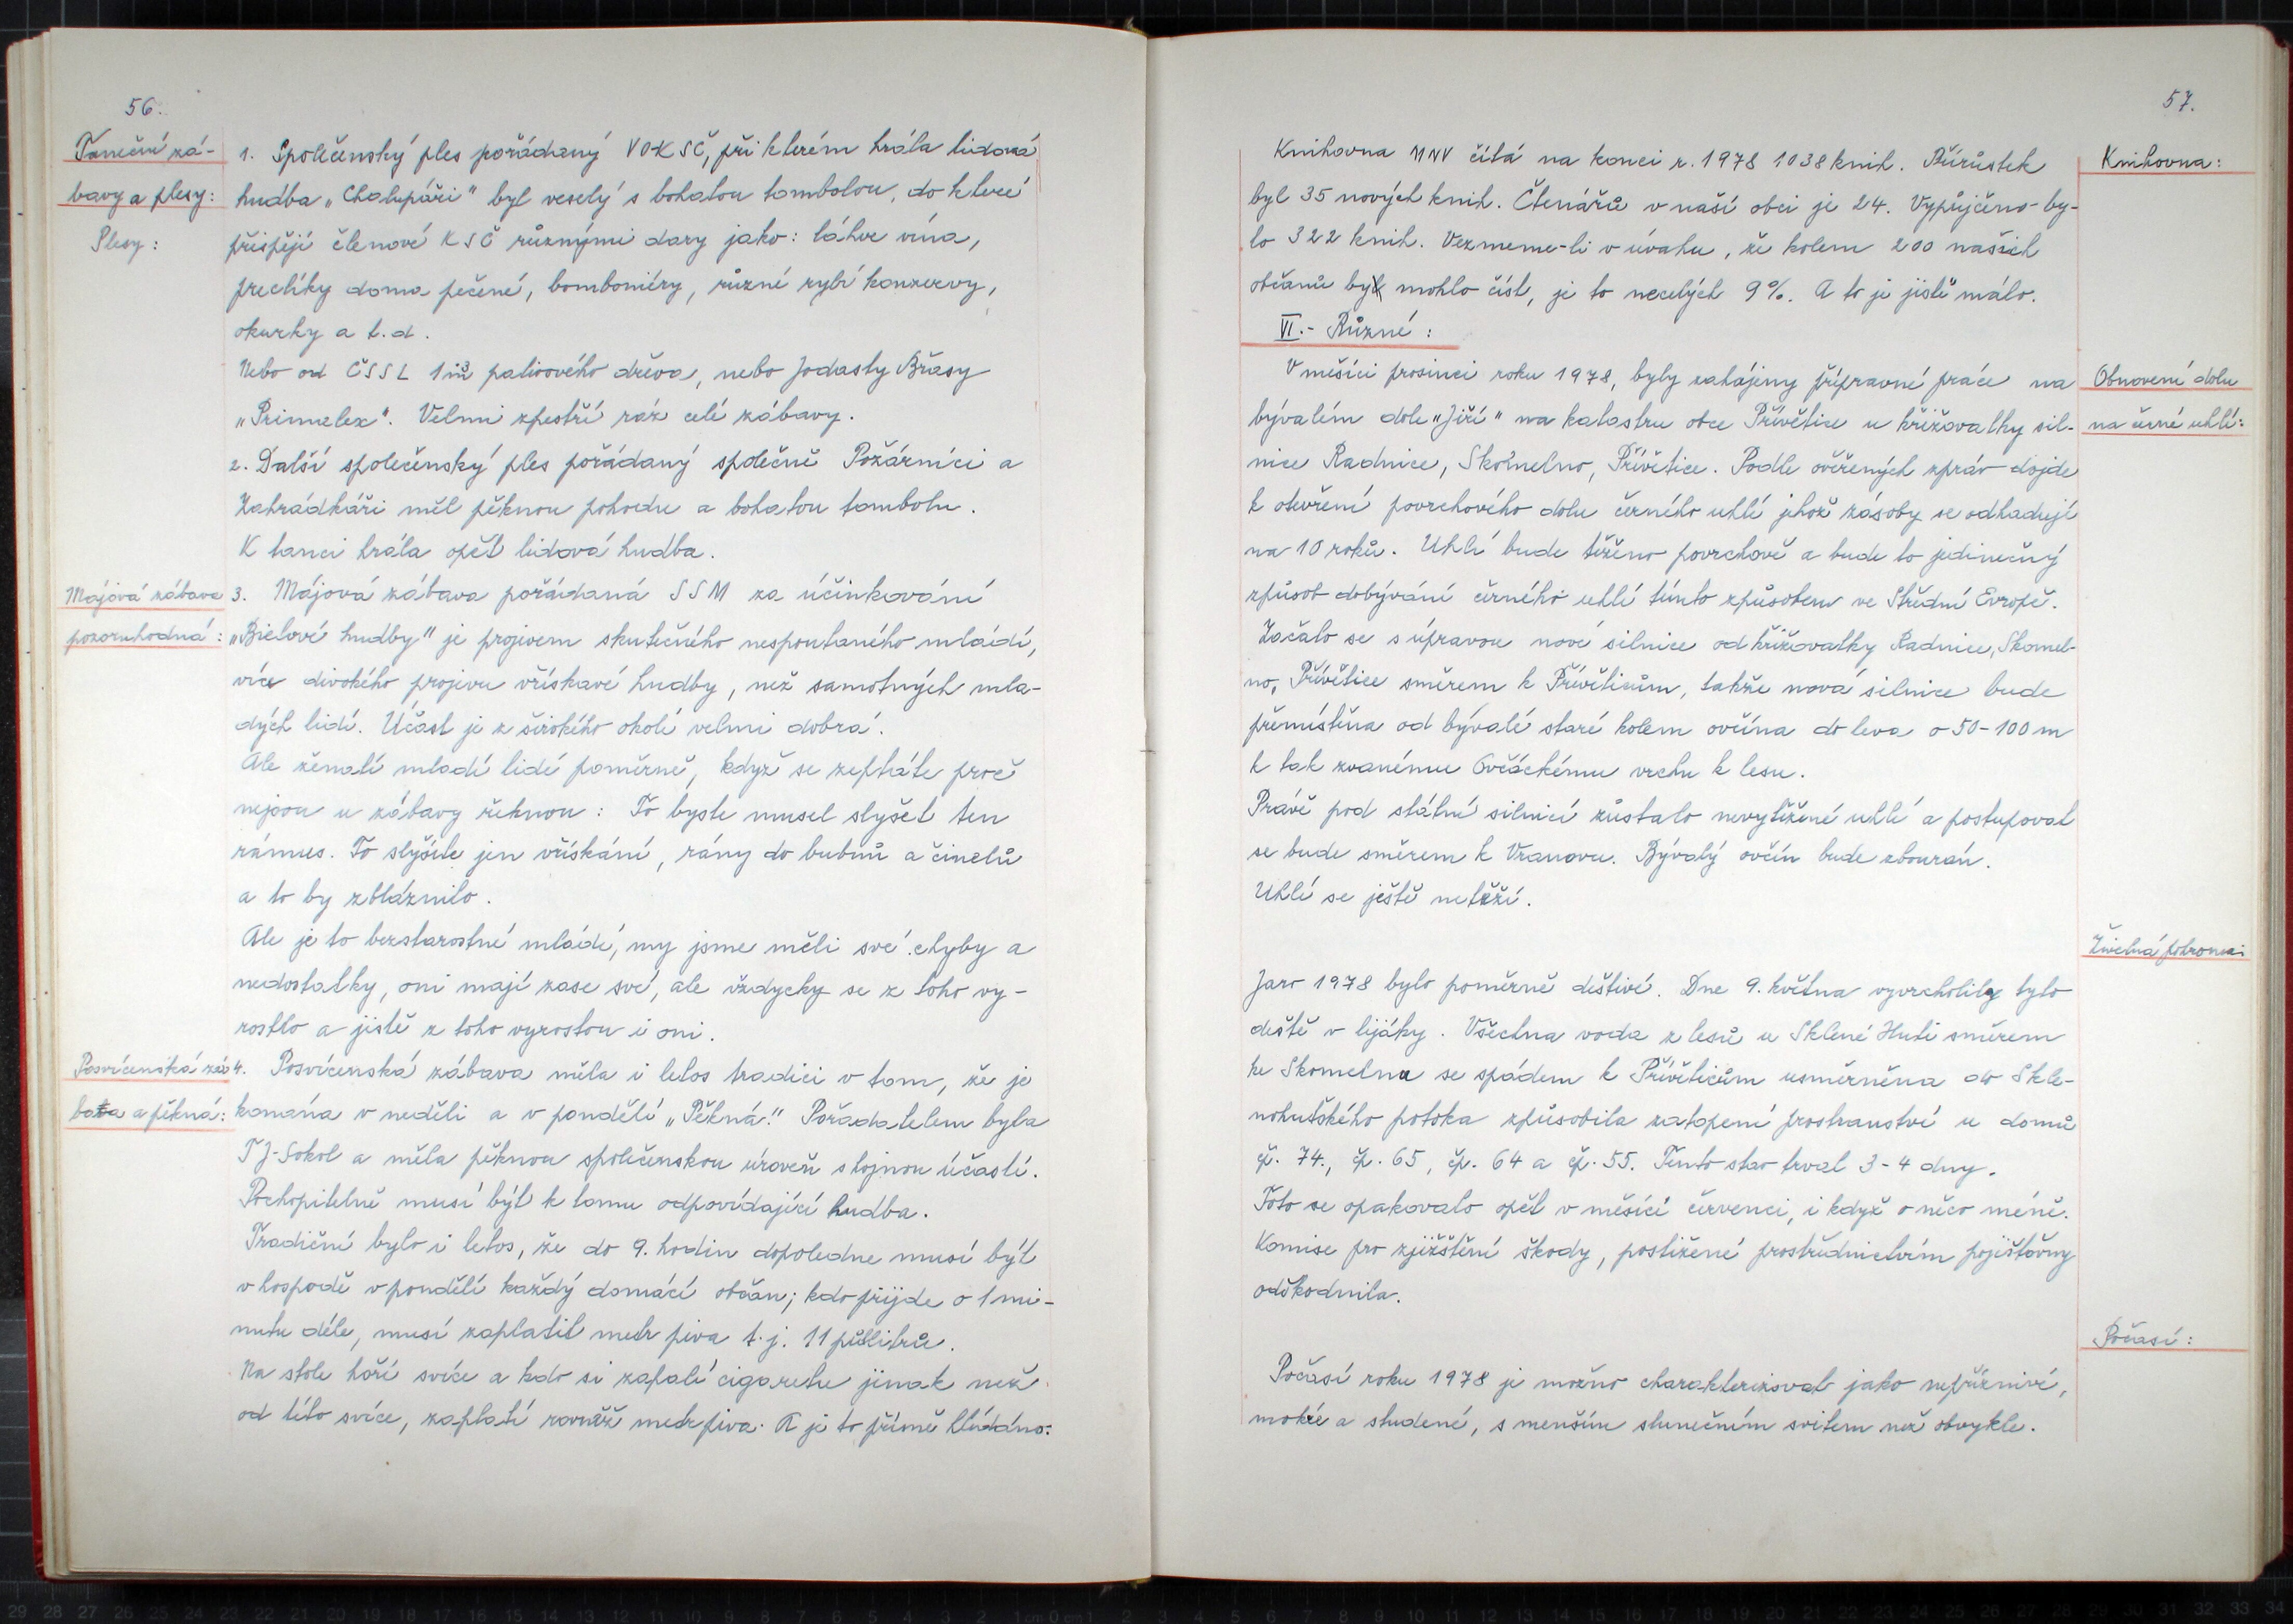 56.
Taneční zá-
bavy a plesy:
Plesy:
1. Společenský ples pořádaný VO-KSČ, při kterém hrála lidová
hudba „Chalupáři" byl veselý s bohatou tombolou, do které
přispějí členové KSČ různými dary jako: láhve vína,
preclíky doma pečené, bomboniéry, různé rybí konzervy,
okurky a t.d.
Nebo od ČSSL 1 m palivového dřeva, nebo Jodasty Břasy
„Primalex". Velmi zpestří ráz celé zábavy.
2. Další společenský ples pořádaný společně Požárníci a
Zahrádkáři měl pěknou pohodu a bohatou tombolu.
K tanci hrála opět lidová hudba.
Májová zábava
pozoruhodná:
3. Májová zábava pořádaná SSM za účinkování
„Bielové hudby" je projevem skutečného nespoutaného mládí,
více divokého projevu vřískavé hudby, než samotných mla-
dých lidí. Účast je z širokého okolí velmi dobrá.
Ale ženatí mladí lidé poměrně, když se zeptáte proč
nejsou u zábavy řeknou: To byste musel slyšet ten
rámus. To slyšíte jen vřískání, rány do bubnů a činelů
a to by zbláznilo.
Ale je to bezstarostné mládí, my jsme měli své chyby a
nedostatky, oni mají zase své, ale vždycky se z toho vy-
rostlo a jistě z toho vyrostou i oni.
Posvícenská zá
bava a pěkná:
4. Posvícenská zábava měla i letos tradici v tom, že je
konána v neděli a v pondělí „Pěkná." Pořadatelem byla
TJ-Sokol a měla pěknou společenskou úroveň s hojnou účastí.
Pochopitelně musí být k tomu odpovídající hudba.
Tradiční bylo i letos, že do 9. hodin dopoledne musí být
v hospodě v pondělí každý domácí občan; kdo přijde o 1 mi-
nutu déle, musí zaplatit metr piva t.j. 11 půllitrů.
Na stole hoří svíce a kdo si zapálí cigaretu jinak než
od této svíce, zaplatí rovněž metr piva. A je to přímě hlídáno:
57.
Knihovna MNV čítá na konci r. 1978 1038 knih. Přírůstek
byl 35 nových knih. Čtenářů v naší obci je 24. Vypůjčeno by-
lo 322 knih. Vezmeme-li v úvahu, že kolem 200 našich
občanů by mohlo číst, je to necelých 9%. A to je jistě málo.
Knihovna:
VI.- Různé:
V měsíci prosinci roku 1978, byly zahájeny přípravné práce na
bývalém dole „Jiří" na katastru obce Přívětice u křižovatky sil-
nice Radnice, Skomelno, Přívětice. Podle ověřených zpráv dojde
k otevření povrchového dolu černého uhlí jehož zásoby se odhadují
na 10 roků. Uhlí bude těženo povrchově a bude to jedinečný
způsob dobývání černého uhlí tímto způsobem ve Střední Evropě.
Začalo se s úpravou nové silnice od křižovatky Radnice, Skomel-
no, Přívětice směrem k Příveticům, takže nová silnice bude
přemístěna od bývalé staré kolem ovčína do leva o 50-100 m
k tak zvanému Ovčáckému vrchu k lesu.
Právě pod státní silnicí zůstalo nevytěžené uhlí a postupovat
se bude směrem k Vranovu. Bývalý ovčín bude zbourán.
Uhlí se ještě netěží.
Obnovení dolu
na černé uhlí:
Živelná pohroma
Jaro 1978 bylo poměrně deštivé. Dne 9. května vyvrcholily tyto
deště v lijáky. Všechna voda z lesů u Sklené Huti směrem
ke Skomelnu se spádem k Příveticům usměrněna do Skle-
nohutského potoka způsobila zatopení prostranství u domů
čp. 74., čp. 65, čp. 64 a čp. 55. Tento stav trval 3-4 dny.
Toto se opakovalo opět v měsíci červenci, i když o něco méně.
Komise pro zjištění škody, postižené prostřednictvím pojišťovny
odškodnila.
Počasí:
Počasí roku 1978 je možno charakterizovat jako nepříznivé,
mokré a studené, s menším slunečním svitem než obvykle.